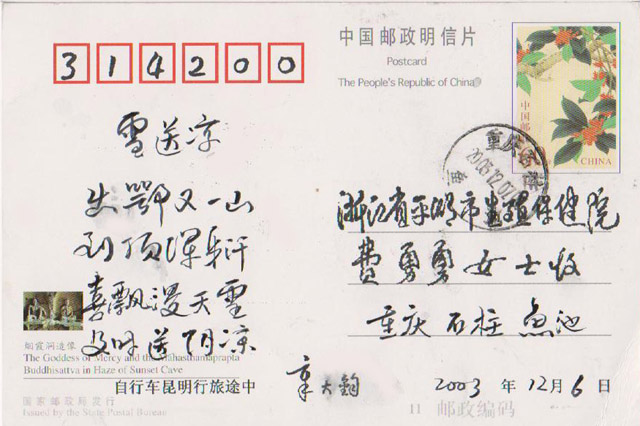 中国邮政明信片
Postcard
The People's Republic of China
314200
中国邮政
CHINA
重庆
2003.12.07
雪送凉
出鄂又一山
到顶浑身汗
喜飘漫天雪
及时送阴凉
浙江省平湖市 保健院
费勇勇女士收
重庆 石柱 鱼池
烟霞洞造像
The Goddess of Mercy and the Mahasthamaprapta
Buddhisattva in Haze of Sunset Cave
自行车昆明行旅途中
章大钧
2003 年 12月 6 日
国家邮政局发行
Issued by the State Postal Bureau
11 邮政编码